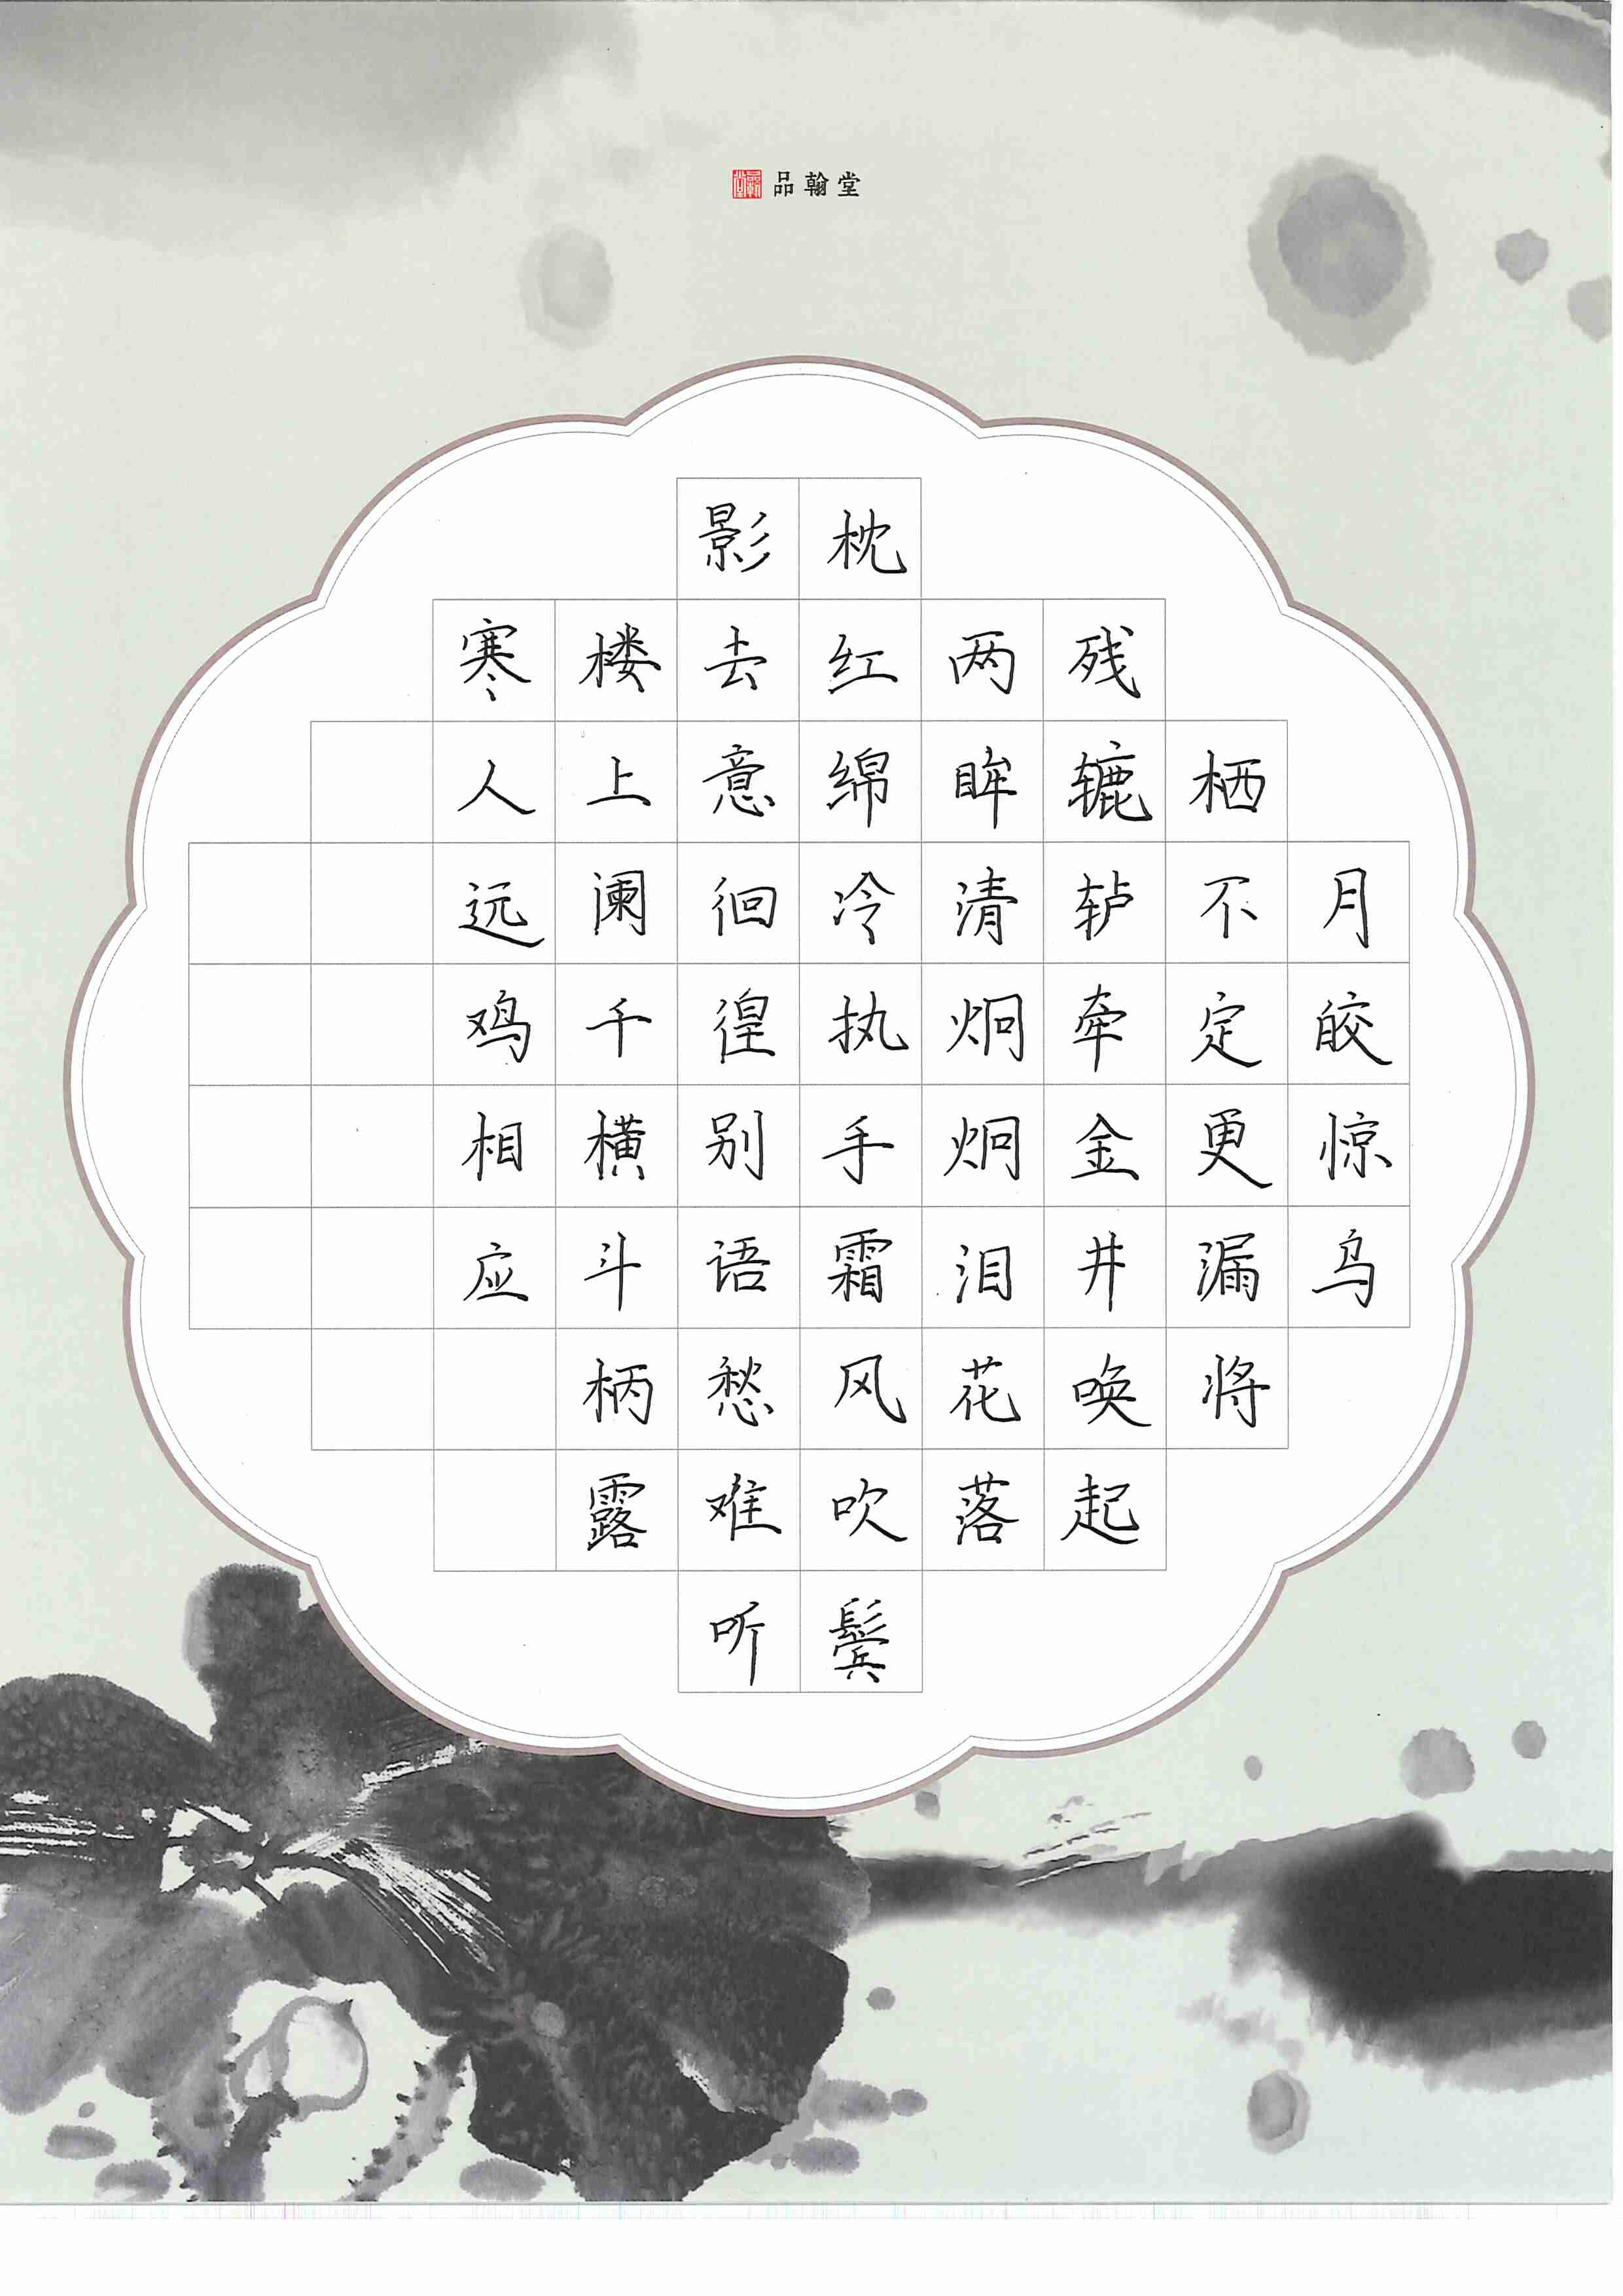 品翰堂
月皎惊乌
栖不定更漏将
残辘轳牵金井唤起
两眸清炯炯泪花落
枕红绵冷执手霜风吹鬓
影去意徊徨别语愁难听
楼上阑千横斗柄露
寒人远鸡相应